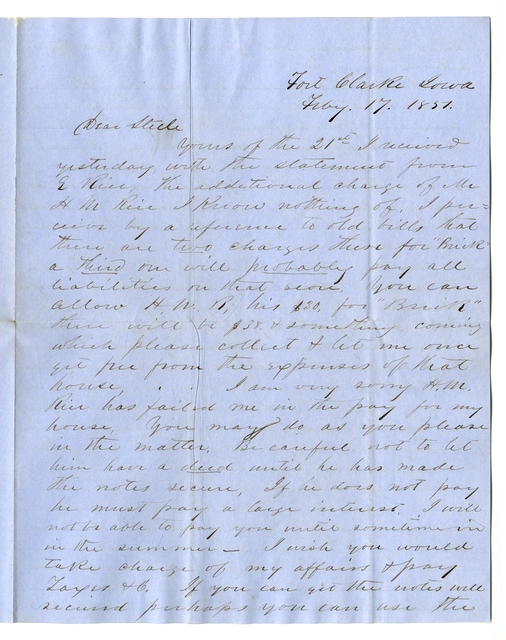 Fort Clarke Iowa
Feby. 17. 1851.
Dear Steele
Yours of the 21st I received
yesterday with the statement from
E Rice, the additional charge of Mr
H M Rice I know nothing of. I per-
ceive by a reference to old bills that
there are two charges there for "Brick"
a Third one will probably pay all
liabilities on that score. You can
allow H. M. R. his $20, for "Brick"
there will be $38. & something coming
which please collect & let me once
get free from the expenses of that
house, . . I am very sorry H. M.
Rice has failed me in the pay for my
house, You may do as you please
in the matter. Be careful not to let
him have a deed until he has made
the notes secure, If he does not pay
he must pay a large interest. I will
not be able to pay you until sometime in
in the summer — I wish you would
take charge of my affairs & pay
Taxes &c. If you can get the notes well
secured perhaps you can use the